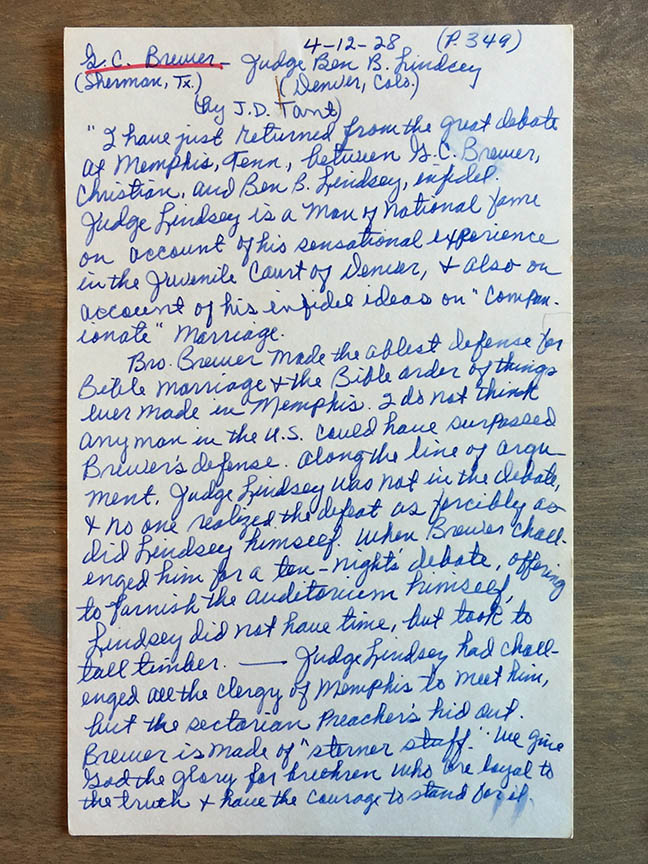 4-12-28 (P. 349)
G. C. Brewer - Judge Ben B. Lindsey
(Sherman, Tx.) (Denver, Colo.)
(by J.D. Tant)
"I have just returned from the great debate
at Memphis, Tenn, between G.C. Brewer,
Christian, and Ben B. Lindsey, infidel.
Judge Lindsey is a man of national fame
on account of his sensational experience
in the Juvenile Court of Denver, & also on
account of his infidel ideas on "Compan-
ionate" Marriage.
Bro. Brewer made the ablest defense for
Bible Marriage & the Bible order of things
ever made in Memphis. I do not think
any man in the U.S. could have surpassed
Brewer's defense. Along the line of argu-
ment, Judge Lindsey was not in the debate,
& no one realized the defeat as forcibly as
did Lindsey himself when Brewer chall-
enged him for a ten-night's debate, offering
to furnish the auditorium himself,
Lindsey did not have time, but took to
tall timber. — Judge Lindsey had chall-
enged all the clergy of Memphis to meet him,
but the sectarian Preacher's hid out.
Brewer is made of "sterner stuff." We give
God the glory for brethren who are loyal to
the truth & have the courage to stand for it.